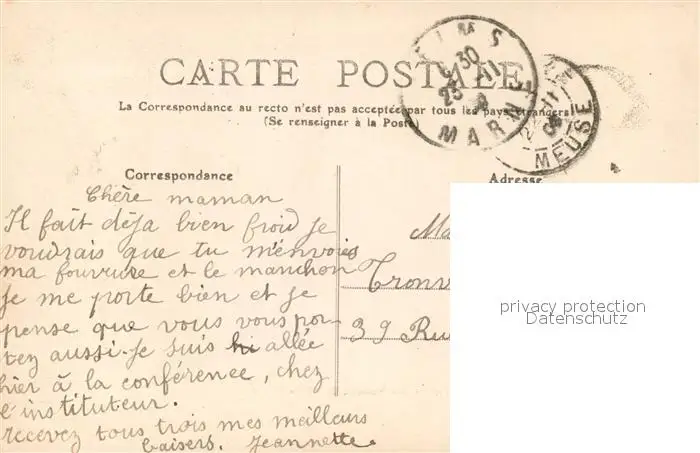 CARTE POSTALE
La Correspondance au recto n'est pas acceptée par tous les pays étrangers
(Se renseigner à la Poste)
Correspondance
Chère maman
Il fait déja bien froid je
voudrais que tu m'envoies
ma fourrure et le manchon
je me porte bien et je
pense que vous vous por-
tez aussi. Je suis allée
hier à la conférence, chez
l'instituteur.
recevez tous trois mes meilleurs
baisers. Jeannette.
Adresse
39 Rue
MARNE
MEUSE
privacy protection
Datenschutz